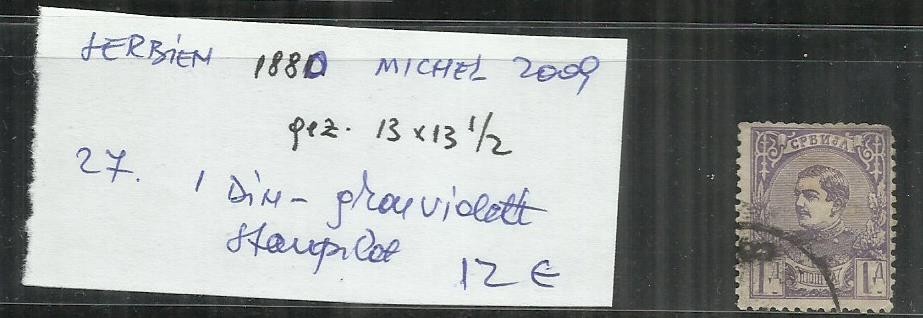 SERBIEN 1880 MICHEL 2009
gez. 13 x 13 1/2
27. 1 DIN - grauviolett
Stampilat
12 €
СРБИЈА
1 Д 1 Д